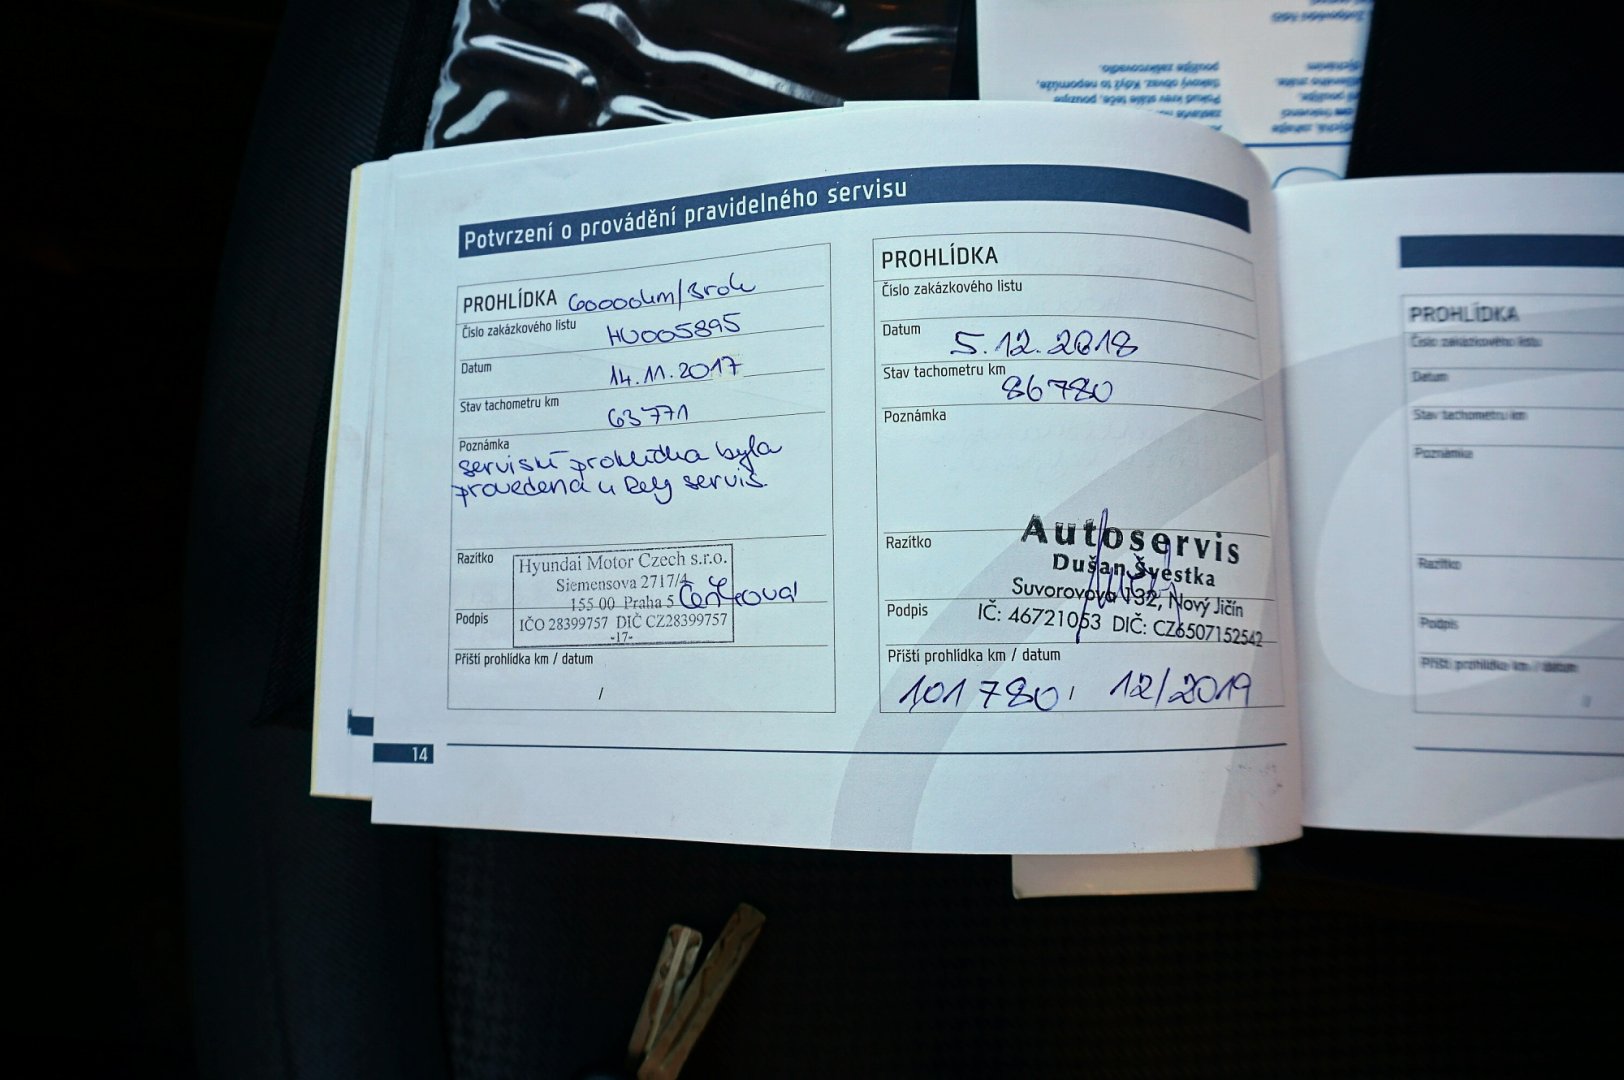 Potvrzení o provádění pravidelného servisu
PROHLÍDKA 60000km/3rok
Číslo zakázkového listu HU005895
Datum 14.11.2017
Stav tachometru km 63771
Poznámka
servisní prohlídka byla
provedena u Dely servis.
Razítko
Hyundai Motor Czech s.r.o.
Siemensova 2717/4
155 00 Praha 5
Podpis
IČO 28399757 DIČ CZ28399757
-17-
Příští prohlídka km / datum
/
14
PROHLÍDKA
Číslo zakázkového listu
Datum 5.12.2018
Stav tachometru km 86780
Poznámka
Razítko
Autoservis
Dušan Švestka
Suvorovova 132, Nový Jičín
Podpis
IČ: 46721053 DIČ: CZ6507152542
Příští prohlídka km / datum
101 780 / 12/2019
PROHLÍDKA
Číslo zakázkového listu
Datum
Stav tachometru km
Poznámka
Razítko
Podpis
Příští prohlídka km / datum
/